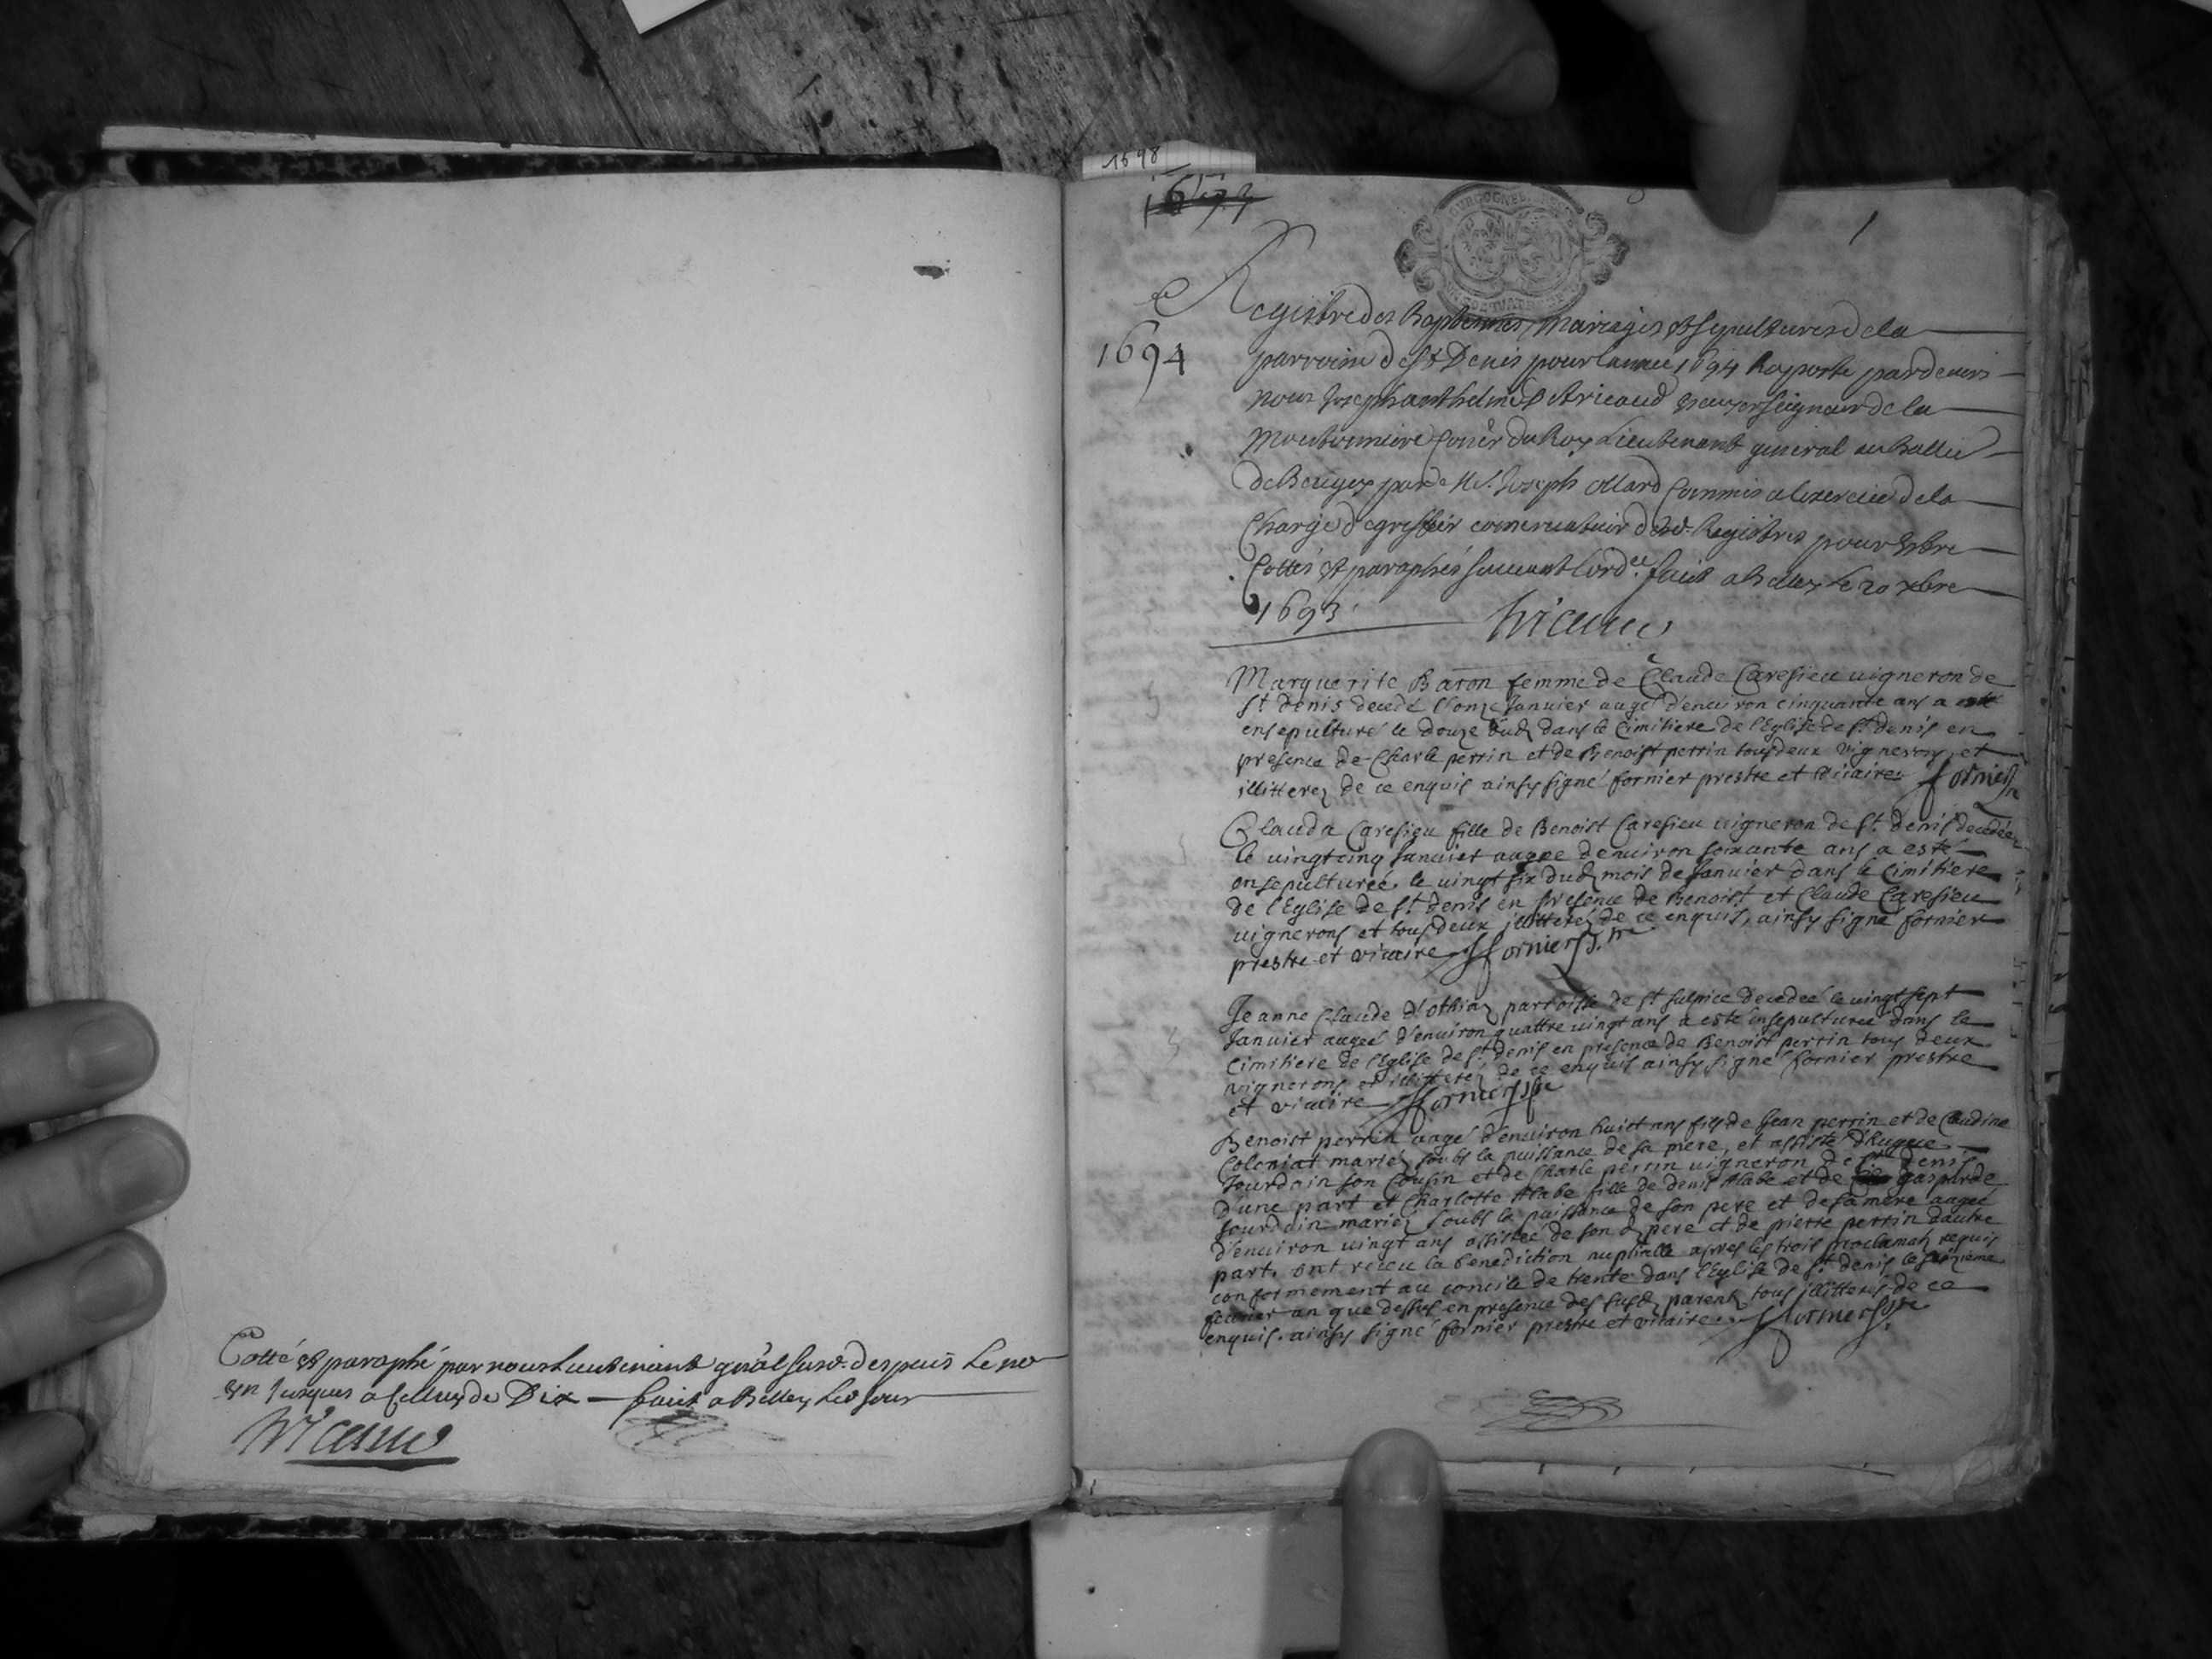 Cotté et paraphé par nous Lieutenant gnâl susd. despuis Le no
un Jusques a Celluy de Dix — fait a Belley Led Jour
1698
1
1694
Registre des Baptesmes, Mariages et Sepultures de la
parroisse de St Denis pour lannee 1694 Raporté pardevers
nous Joseph Anthelme Tricaud seigneur de la
Conêr du Roy Lieutenant general au Baillê
de Beugey par Me. Joseph Commis a lexercice de la
Charge de greffier conservateur desd. Registres pour estre
Cottés et paraphés suivant lord.ce fait a Belley le 20 xbre
1693
Marguerite Baron femme de Claude Caresieu vigneron de
St denis decedé l'onze Janvier augé d'environ cinquante ans a esté
ensepulturé le douze dud dans le Cimitiere de l'Eglise de St. denis en
presence de Charle perrin et de Benoist perrin tous deux vignerons et
illitterez de ce enquis ainsy signé fornier prestre et vicaire fornier
Clauda Caresieu fille de Benoist Caresieu vigneron de St. denis decedée
le vingt cinq Janvier augee denviron soixante ans a esté
ensepulturée le vingt six dud mois de Janvier dans le Cimitiere
de l'Eglise de St. denis en presence de Benoist et Claude Caresieu
vignerons et tous deux illitterez de ce enquis, ainsy signé fornier
prestre et vicaire fornier
Jeanne Claude d'othiaz parroisse de St sulpice decedeé le vingt sept
Janvier augeé d'environ quattre vingt ans a esté ensepulturee dans le
Cimitiere de l'Eglise de St. denis en presence de Benoist perrin tous deux
vignerons et illitterez de ce enquis ainsy signé fornier prestre
et vicaire fornier
Benoist perrin augé d'environ huict ans fils de Jean perrin et de Claudine
Coloniat mariéz soubs la puissance de sa mere, et assisté d'hugue
Jourdain son Cousin et de Charle perrin vigneron de St denis
d'une part et Charlotte Alabe fille de denis Alabe et de gasparde
Jourdain mariéz soubs la puissance de son pere et de sa mere augeé
d'environ vingt ans assistée de son d pere et de pierre perrin dautre
part, ont receu la benediction nuptialle apres les trois proclamaõ requis
conformement au concile de trente dans l'Eglise de St. denis le seizieme
fevrier an que dessus en presence des susd parents tous illitterés de ce
enquis. ainsy signé fornier prestre et vicaire. fornier